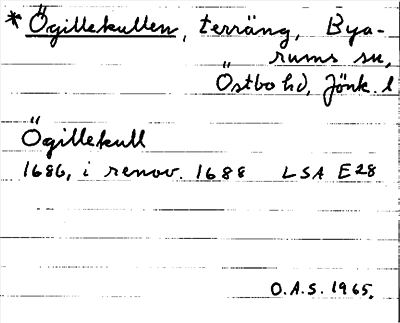 * Ögillekullen, terräng, Bya-
rums sn,
Östbo hd, Jönk. l
Ögillekull
1686, i renov. 1688 LSA E28
O.A.S. 1965.